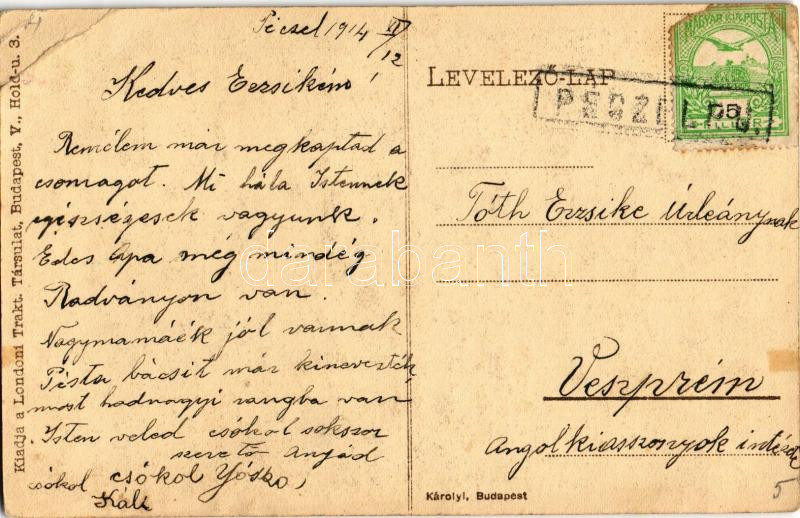 Kiadja a Londoni Trakt. Társulat, Budapest, V., Hold-u. 3.
Péczel 1914 VI/12
Kedves Erzsikém!
Remélem már megkaptad a
csomagot. Mi hála Istennek
egészségesek vagyunk.
Edes Apa még mindég
Radványon van.
Nagymamáék jól vannak
Pista bácsit már kinevezték
most hadnagyi rangba van
Isten veled csókol sokszor
szerető Anyád
csókol csókol Jóska,
Kál
LEVELEZŐ-LAP
MAGYAR KIR. POSTA
PÉCZ P.U.
Tóth Erzsike Úrleánynak
Veszprém
Angolkisasszonyok intézete
Károlyi, Budapest
5
darabanth